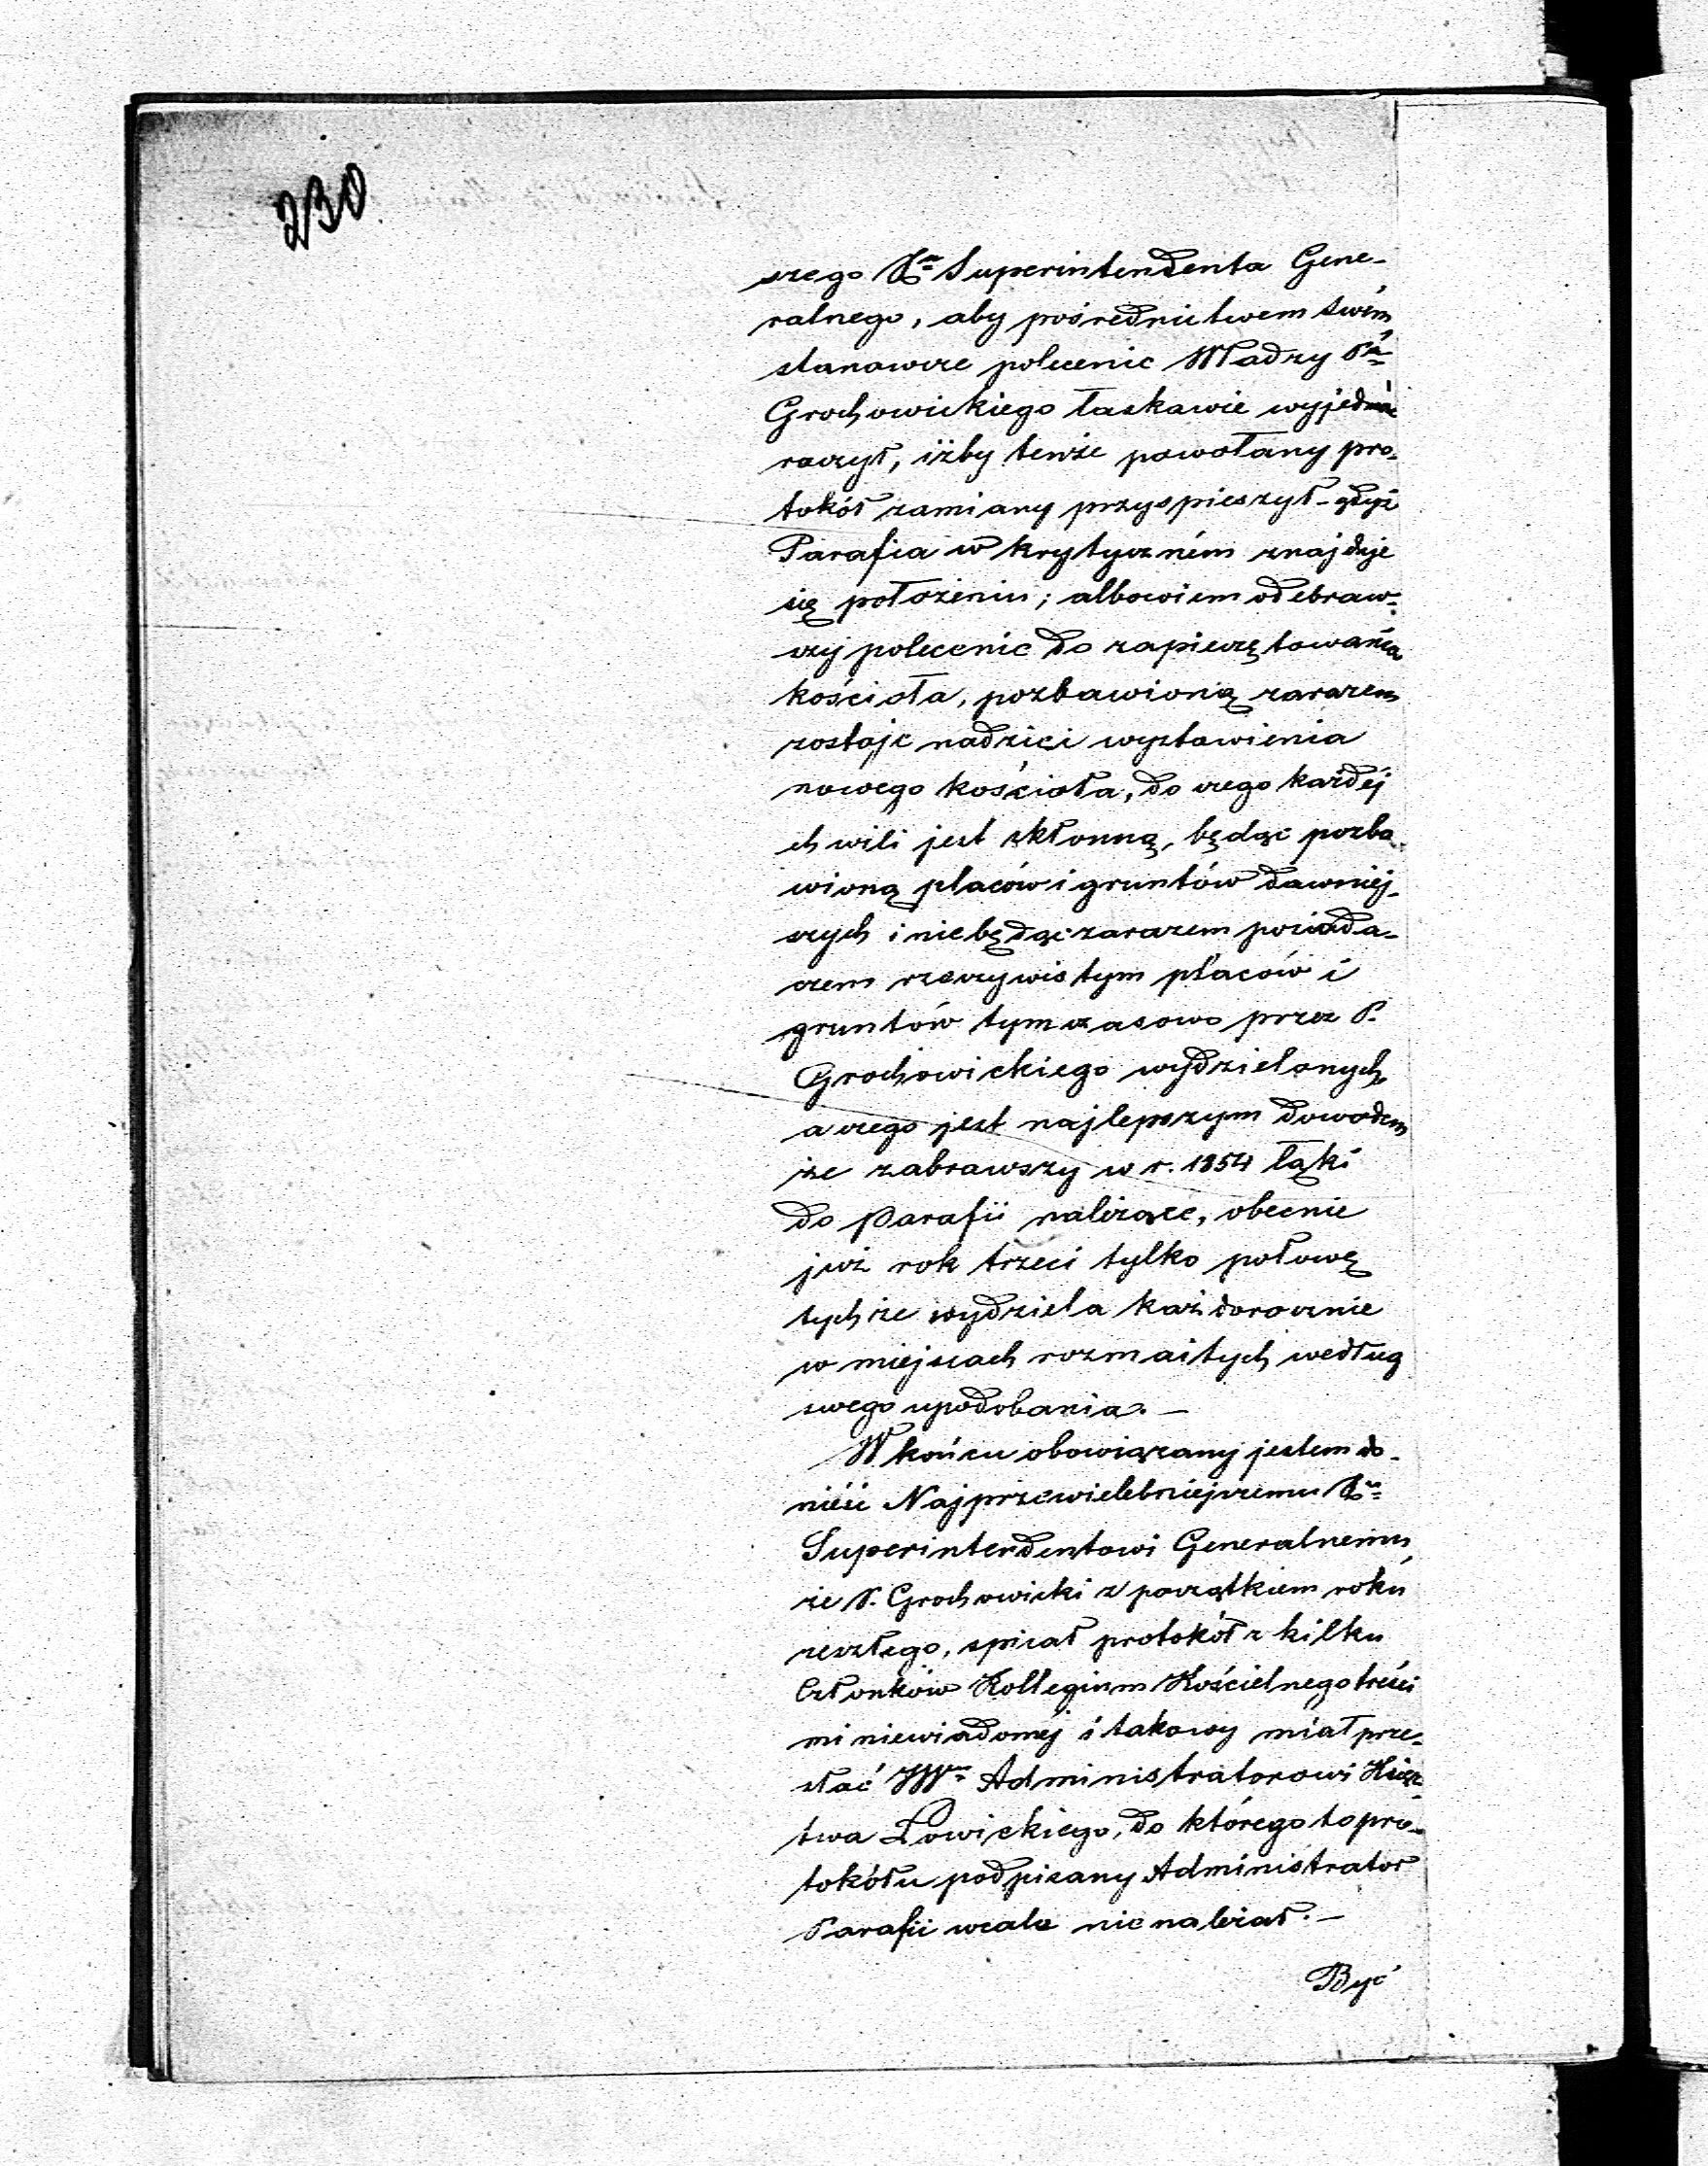 230
szego X<sup>a</sup> Superintendenta Gene-
ralnego, aby pośrednictwem swém,
stanowcze polecenie Władzy P<sup>a</sup>
Grochowickiego łaskawie wyjednać
raczył, iżby tenże powołany pro-
tokół zamiany przyspieszył - gdyż
Parafia w krytyczném znajduje
się położeniu; albowiem odebraw-
szy polecenie do zapieczętowania
kościoła, pozbawioną zarazem
zostaje nadziei wystawienia
nowego kościoła, do czego każdéj
chwili jest skłonną, będąc pozba-
wioną placów i gruntów dawniej-
szych i niebędąc zarazem posiada-
czem rzeczywistym placów i
gruntów tymczasowo przez P.
Grochowickiego wydzielonych,
a czego jest najlepszym dowodem
że zabrawszy w r. 1854 łąki
do Parafii należące, obecnie
już rok trzeci tylko połowę
tychże wydziela każdorocznie
w miejscach rozmaitych według
swego upodobania. —
W końcu obowiązany jestem do-
nieść Najprzewielebniejszemu X<sup>u</sup>
Superintendentowi Generalnemu,
że P. Grochowicki z początkiem roku
zeszłego, spisał protokół z kilku
Członków Kollegium Kościelnego treści
mi niewiadoméj i takowy miał prze-
słać JW<sup>u</sup> Administratorowi Księz-
twa Łowickiego, do którego to pro-
tokółu podpisany Administrator
Parafii wcale nie należał. —
Być